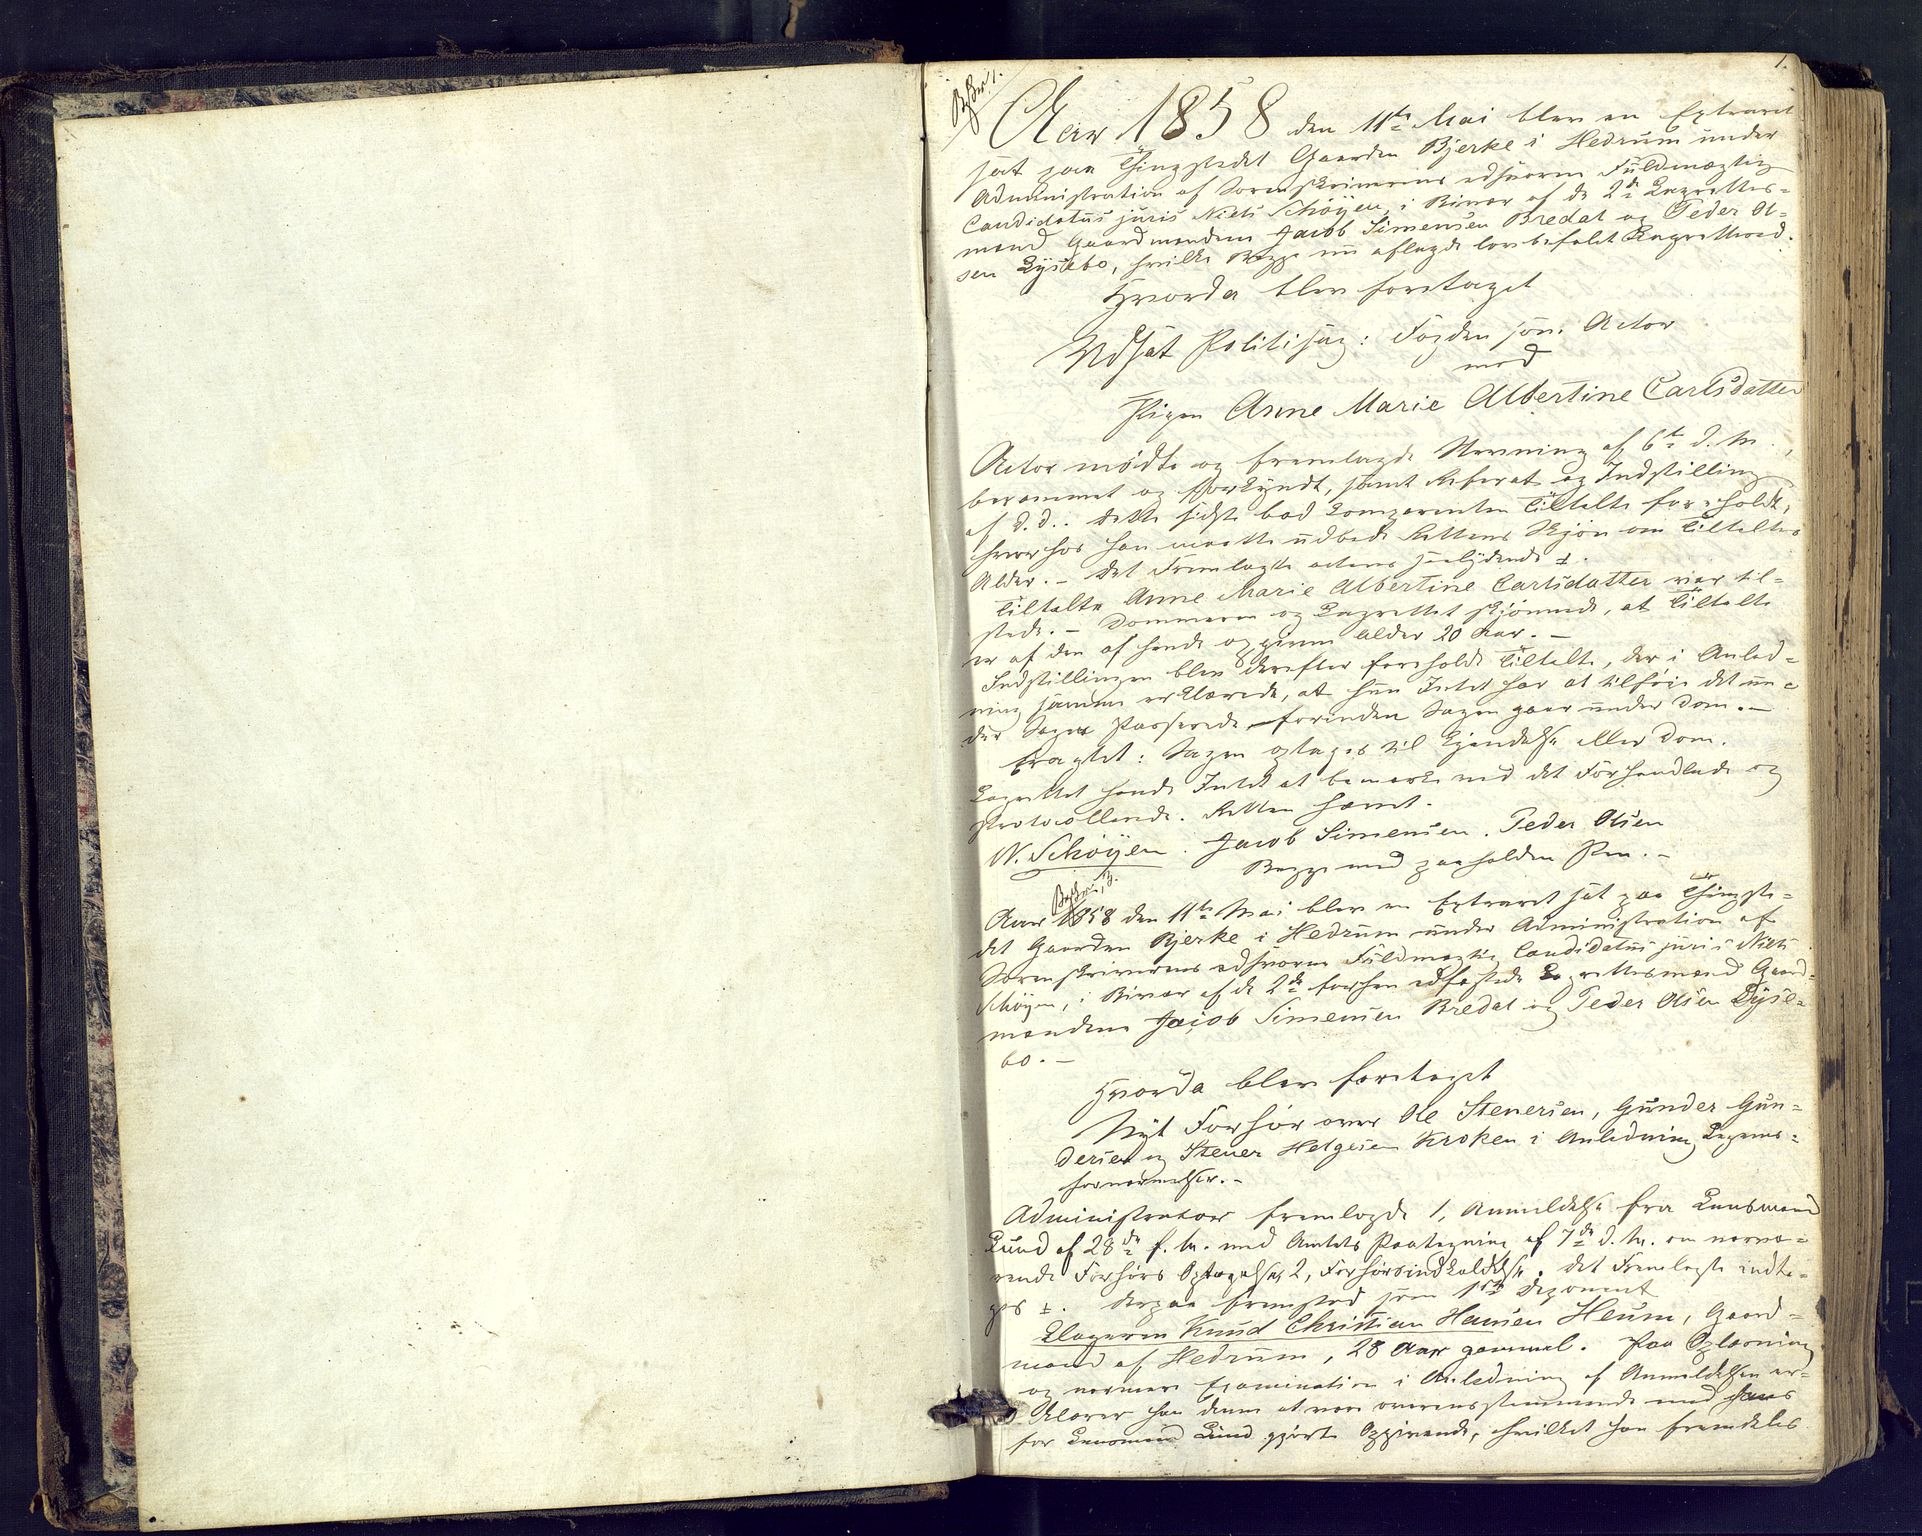 1.
Aar 1858 den 11te Mai blev en Extraret
sat paa Thingstedet Gaarden Bjerke i Hedrum under
Administration af Sorenskriverens edsvorne Fuldmægtig
Candidatus juris Niels Schöyen, i Bivær af de 2de Lagrettes=
mænd Gaardmændene Jacob Simensen Bredal og Peder Ol=
sen Lysebo, hvilke Begge nu aflagde lovbefalet Lagrettesed.
Hvorda blev foretaget
Udsat Politisag: Fogden som Actor
mod
Pigen Anne Marie Albertine Carlsdatter
Actor mödte og fremlagde Stevning af 6te d. M.,
berammet og forkyndt, samt Referat og Indstilling
af d.d.. Dette sidste bad Comparenten Tiltalte foreholdt,
hvorhos han maatte udbede Rettens Skjön om Tiltaltes
Alder. - Det Fremlagte acteres saalydende
Tiltalte Anne Marie Albertine Carlsdatter var til=
stede. - Dommeren og Lagrettet skjönnede, at Tiltalte
er af den af hende opgivne Alder 20 Aar. -
Indstillingen blev derefter foreholdt Tiltalte, der i Anled=
ning samme erklærede, at hun Intet har at tilföie det un=
der Sagen Passerede forinden Sagen gaar under Dom. -
Eragtet: Sagen optages til Kjendelse eller Dom.
Lagrettet havde Intet at bemærke ved det Forhandlede og
Protocollerede. Retten hævet.
N. Schöyen. Jacob Simensen. Peder Olsen
Begge med paaholden Pen. -
Aar 1858 den 11te Mai blev en Extraret sat paa Thingste=
det Gaarden Bjerke i Hedrum under Administration af
Sorenskriverens edsvorne Fuldmægtig Candidatus juris Niels
Schöyen, i Bivær af de 2de forhen edfæstede Lagrettesmænd Gaard=
mændene Jacob Simensen Bredal og Peder Olsen Lyse=
bo. -
Hvorda blev foretaget
Nyt Forhör over Ole Stenersen, Gunder Gun=
dersen og Stener Helgesen Kroken i Anledning Legems=
fornærmelser. -
Administrator fremlagde 1, Anmeldelse fra Lensmand
Lund af 28de f. M. med Amtets Paategning af 7de d. M. om nærvæ=
rende Forhörs Optagelse, 2, Forhörsindkaldelse. Det Fremlagte indta=
ges. Derpaa fremstod som 1ste Deponent
Klageren Knud Christian Hansen Heum, Gaard=
mand af Hedrum, 28 Aar gammel. Paa Oplæsning
og nærmere Examination i Anledning af Anmeldelsen er=
klærer han denne at være overensstemmende med hans
for Lensmand Lund gjorte Opgivende, hvilket han fremdeles